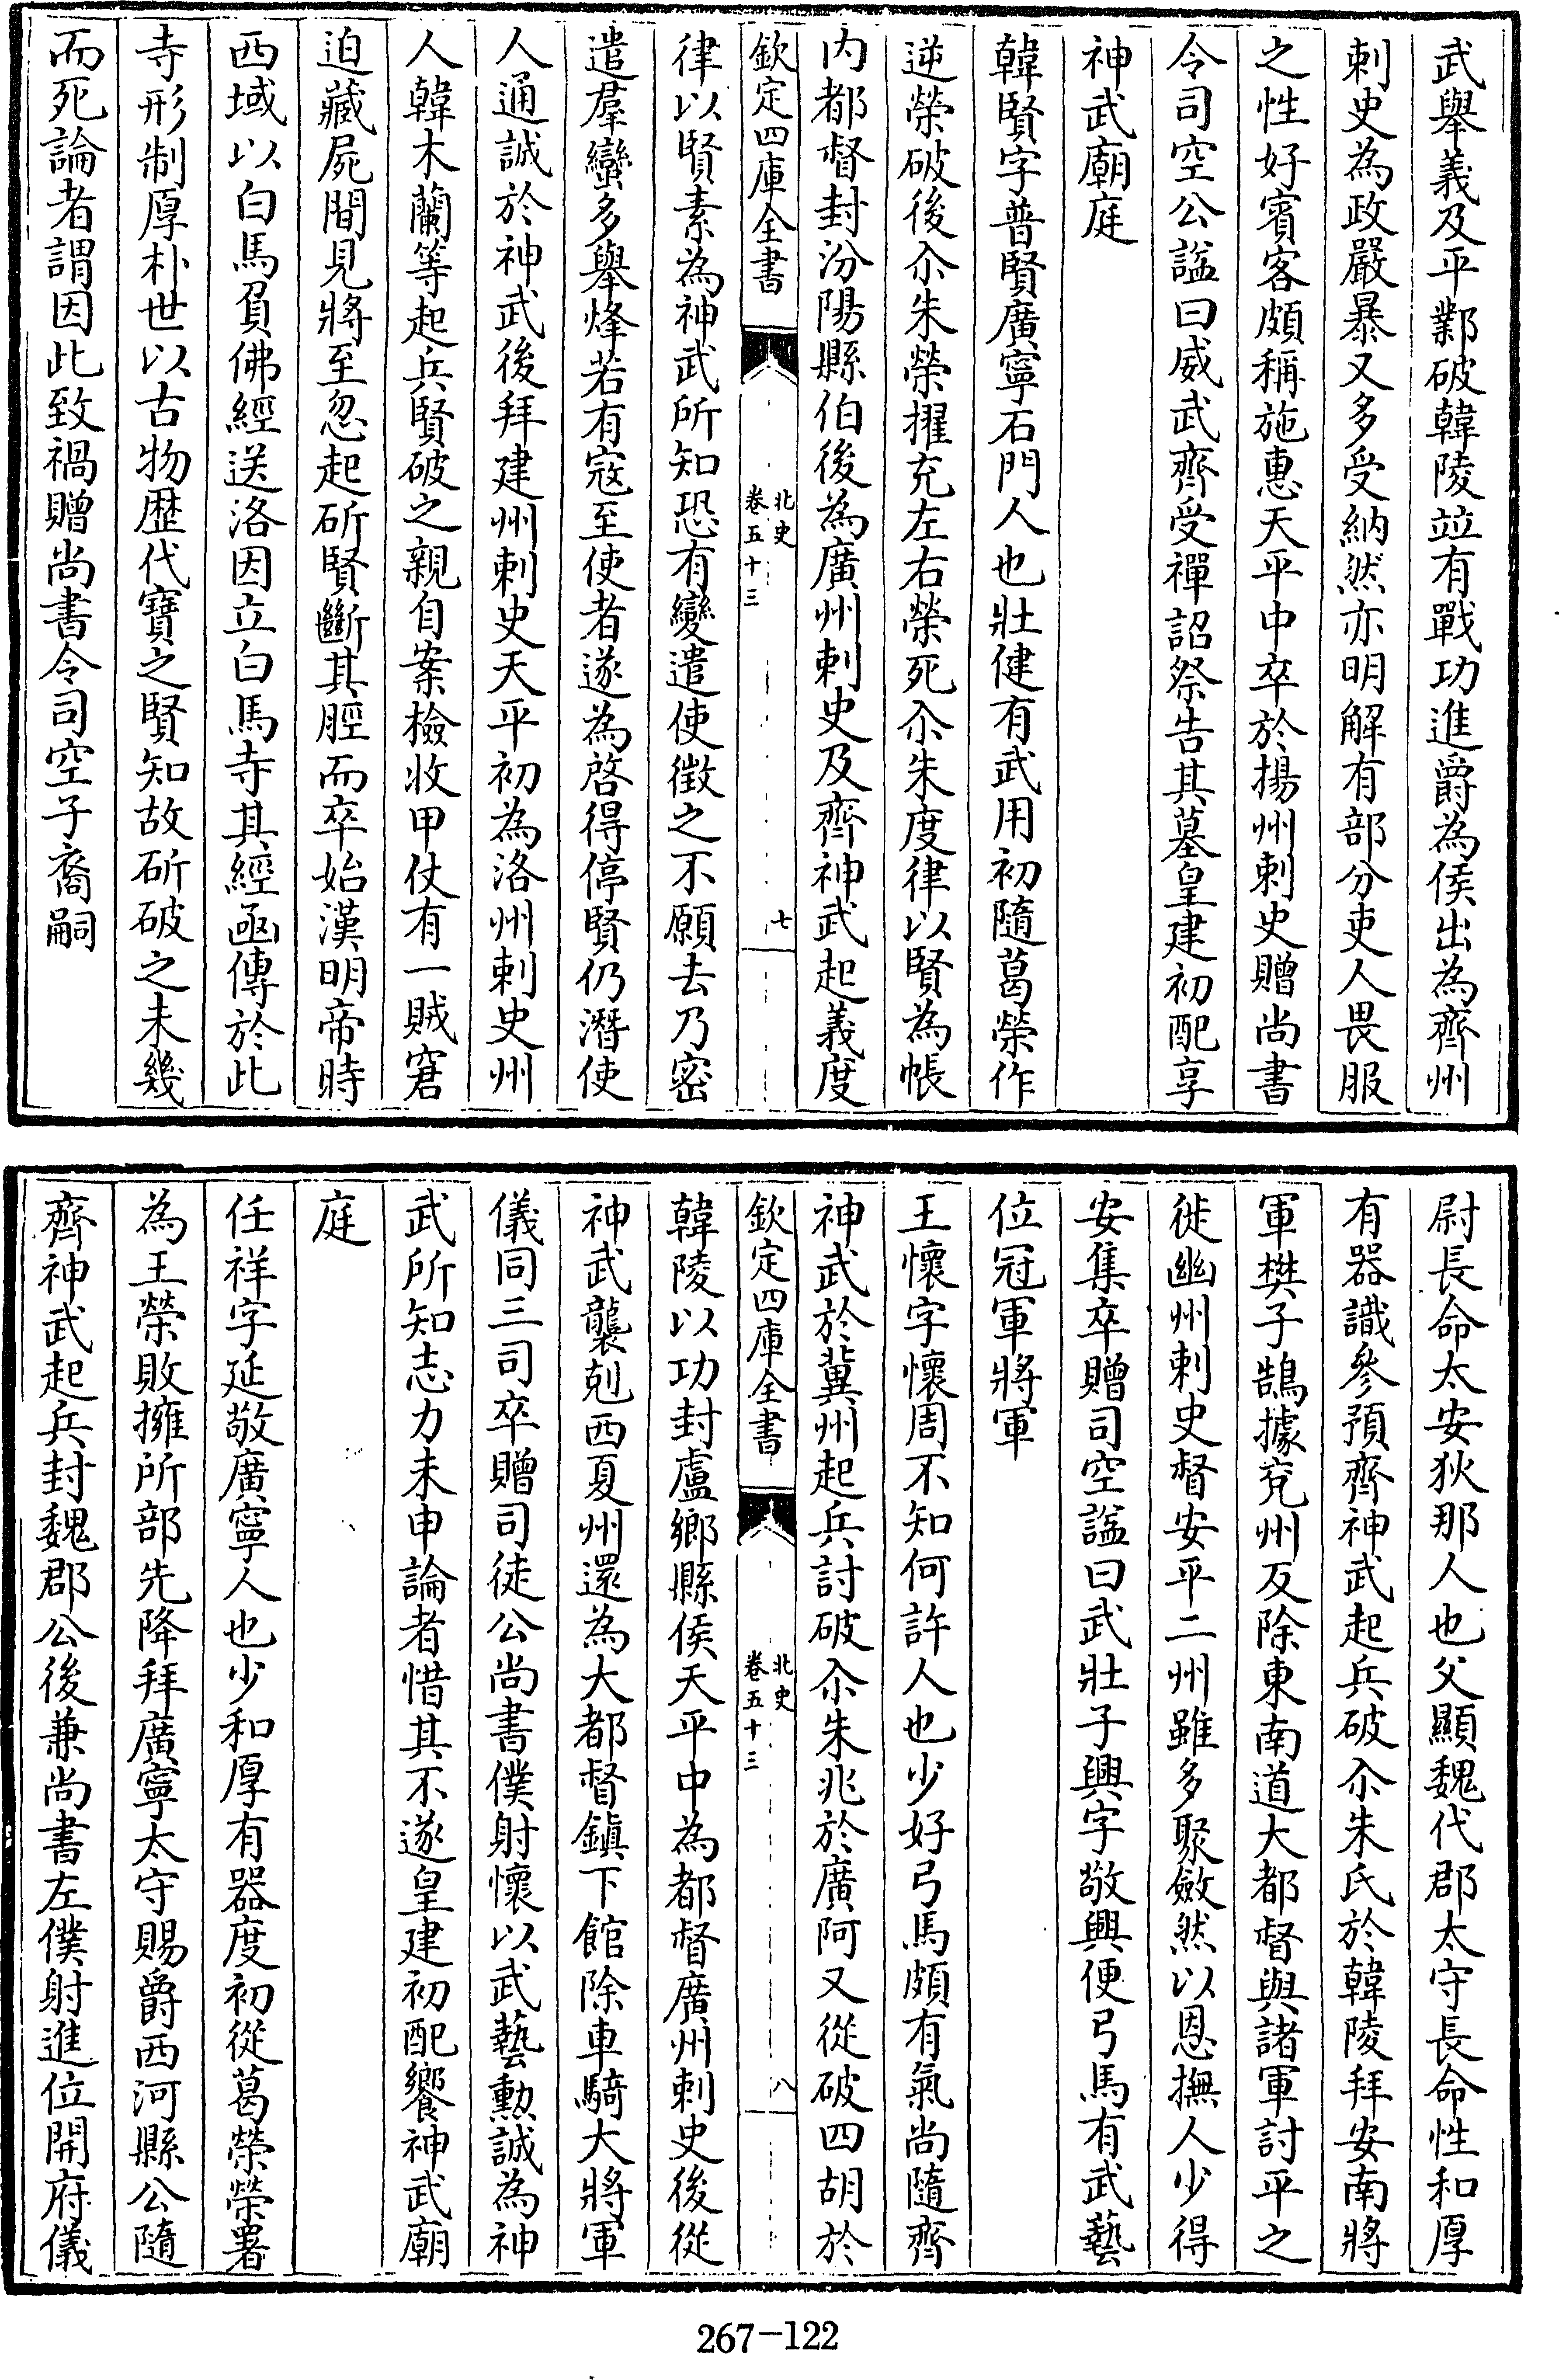 武舉義及平鄴破韓陵竝有戰功進爵為侯出為齊州
刺史為政嚴暴又多受納然亦明解有部分吏人畏服
之性好賓客頗稱施惠天平中卒於揚州刺史贈尚書
令司空公諡曰威武齊受禪詔祭告其墓皇建初配享
神武廟庭
韓賢字普賢廣寧石門人也壯健有武用初隨葛榮作
逆榮破後尒朱榮擢充左右榮死尒朱度律以賢為帳
内都督封汾陽縣伯後為廣州刺史及齊神武起義度
欽定四庫全書
北史
卷五十三
七
律以賢素為神武所知恐有變遣使徵之不願去乃密
遣羣蠻多舉烽若有寇至使者遂為啓得停賢仍潛使
人通誠於神武後拜建州刺史天平初為洛州刺史州
人韓木蘭等起兵賢破之親自案檢收甲仗有一賊窘
迫藏屍間見將至忽起斫賢斷其脛而卒始漢明帝時
西域以白馬負佛經送洛因立白馬寺其經函傳於此
寺形制厚朴世以古物歴代寶之賢知故斫破之未幾
而死論者謂因此致禍贈尚書令司空子裔嗣
尉長命太安狄那人也父顯魏代郡太守長命性和厚
有器識參預齊神武起兵破尒朱氏於韓陵拜安南將
軍樊子鵠據兗州反除東南道大都督與諸軍討平之
徙幽州刺史督安平二州雖多聚斂然以恩撫人少得
安集卒贈司空諡曰武壯子興字敬興便弓馬有武藝
位冠軍將軍
王懷字懷周不知何許人也少好弓馬頗有氣尚隨齊
神武於冀州起兵討破尒朱兆於廣阿又從破四胡於
欽定四庫全書
北史
卷五十三
八
韓陵以功封盧鄉縣侯天平中為都督廣州刺史後從
神武襲剋西夏州還為大都督鎮下館除車騎大將軍
儀同三司卒贈司徒公尚書僕射懷以武藝勲誠為神
武所知志力未申論者惜其不遂皇建初配饗神武廟
庭
任祥字延敬廣寧人也少和厚有器度初從葛榮榮署
為王榮敗擁所部先降拜廣寧太守賜爵西河縣公隨
齊神武起兵封魏郡公後兼尚書左僕射進位開府儀
267-122